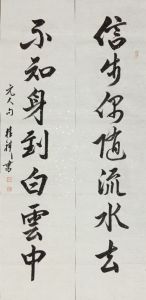 信步偶随流水去
不知身到白雲中
元人句 桂祥書